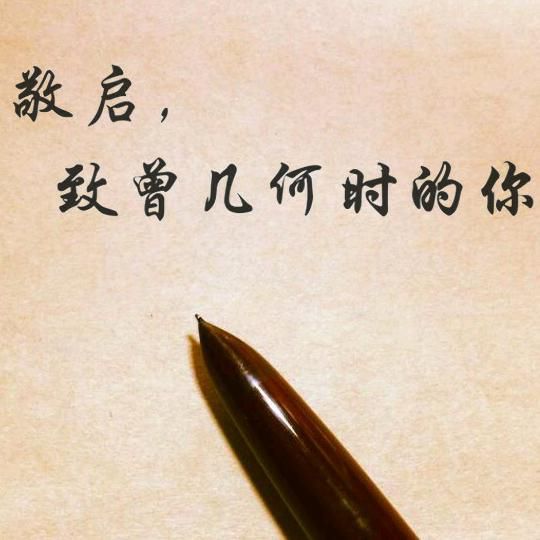 敬启，
致曾几何时的你